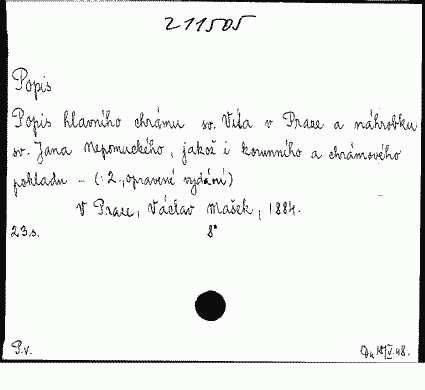 211505
Popis
Popis hlavního chrámu sv. Víta v Praze a náhrobku
sv. Jana Nepomuckého, jakož i korunního a chrámového
pokladu - (2., opravené vydání)
V Praze, Václav Mašek, 1884.
23.s. 8°
P.v. V.48.